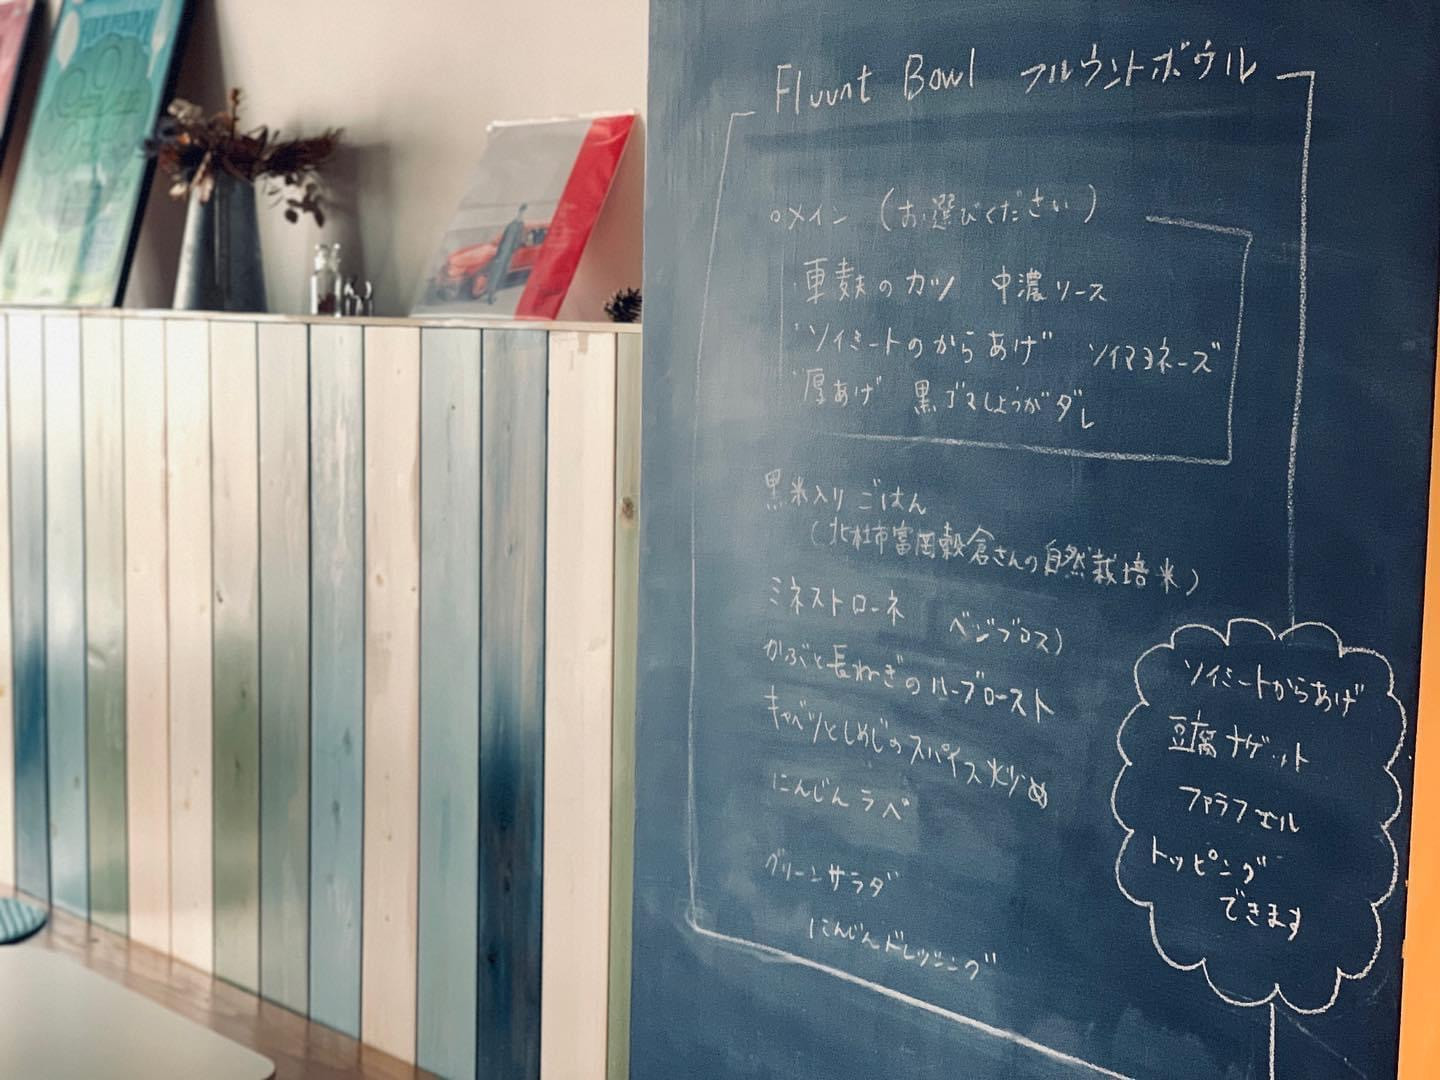 Fluunt Bowl フルウントボウル
○メイン (お選びください)
・車麩のカツ 中濃ソース
・ソイミートのからあげ ソイマヨネーズ
・厚あげ 黒ゴマしょうがダレ
黒米入りごはん
(北杜市富岡穀倉さんの自然栽培米)
ミネストローネ ベジブロス)
かぶと長ねぎのハーブロースト
キャベツとしめじのスパイス炒め
にんじんラペ
グリーンサラダ
にんじんドレッシング
ソイミートからあげ
豆腐ナゲット
ファラフェル
トッピング
できます